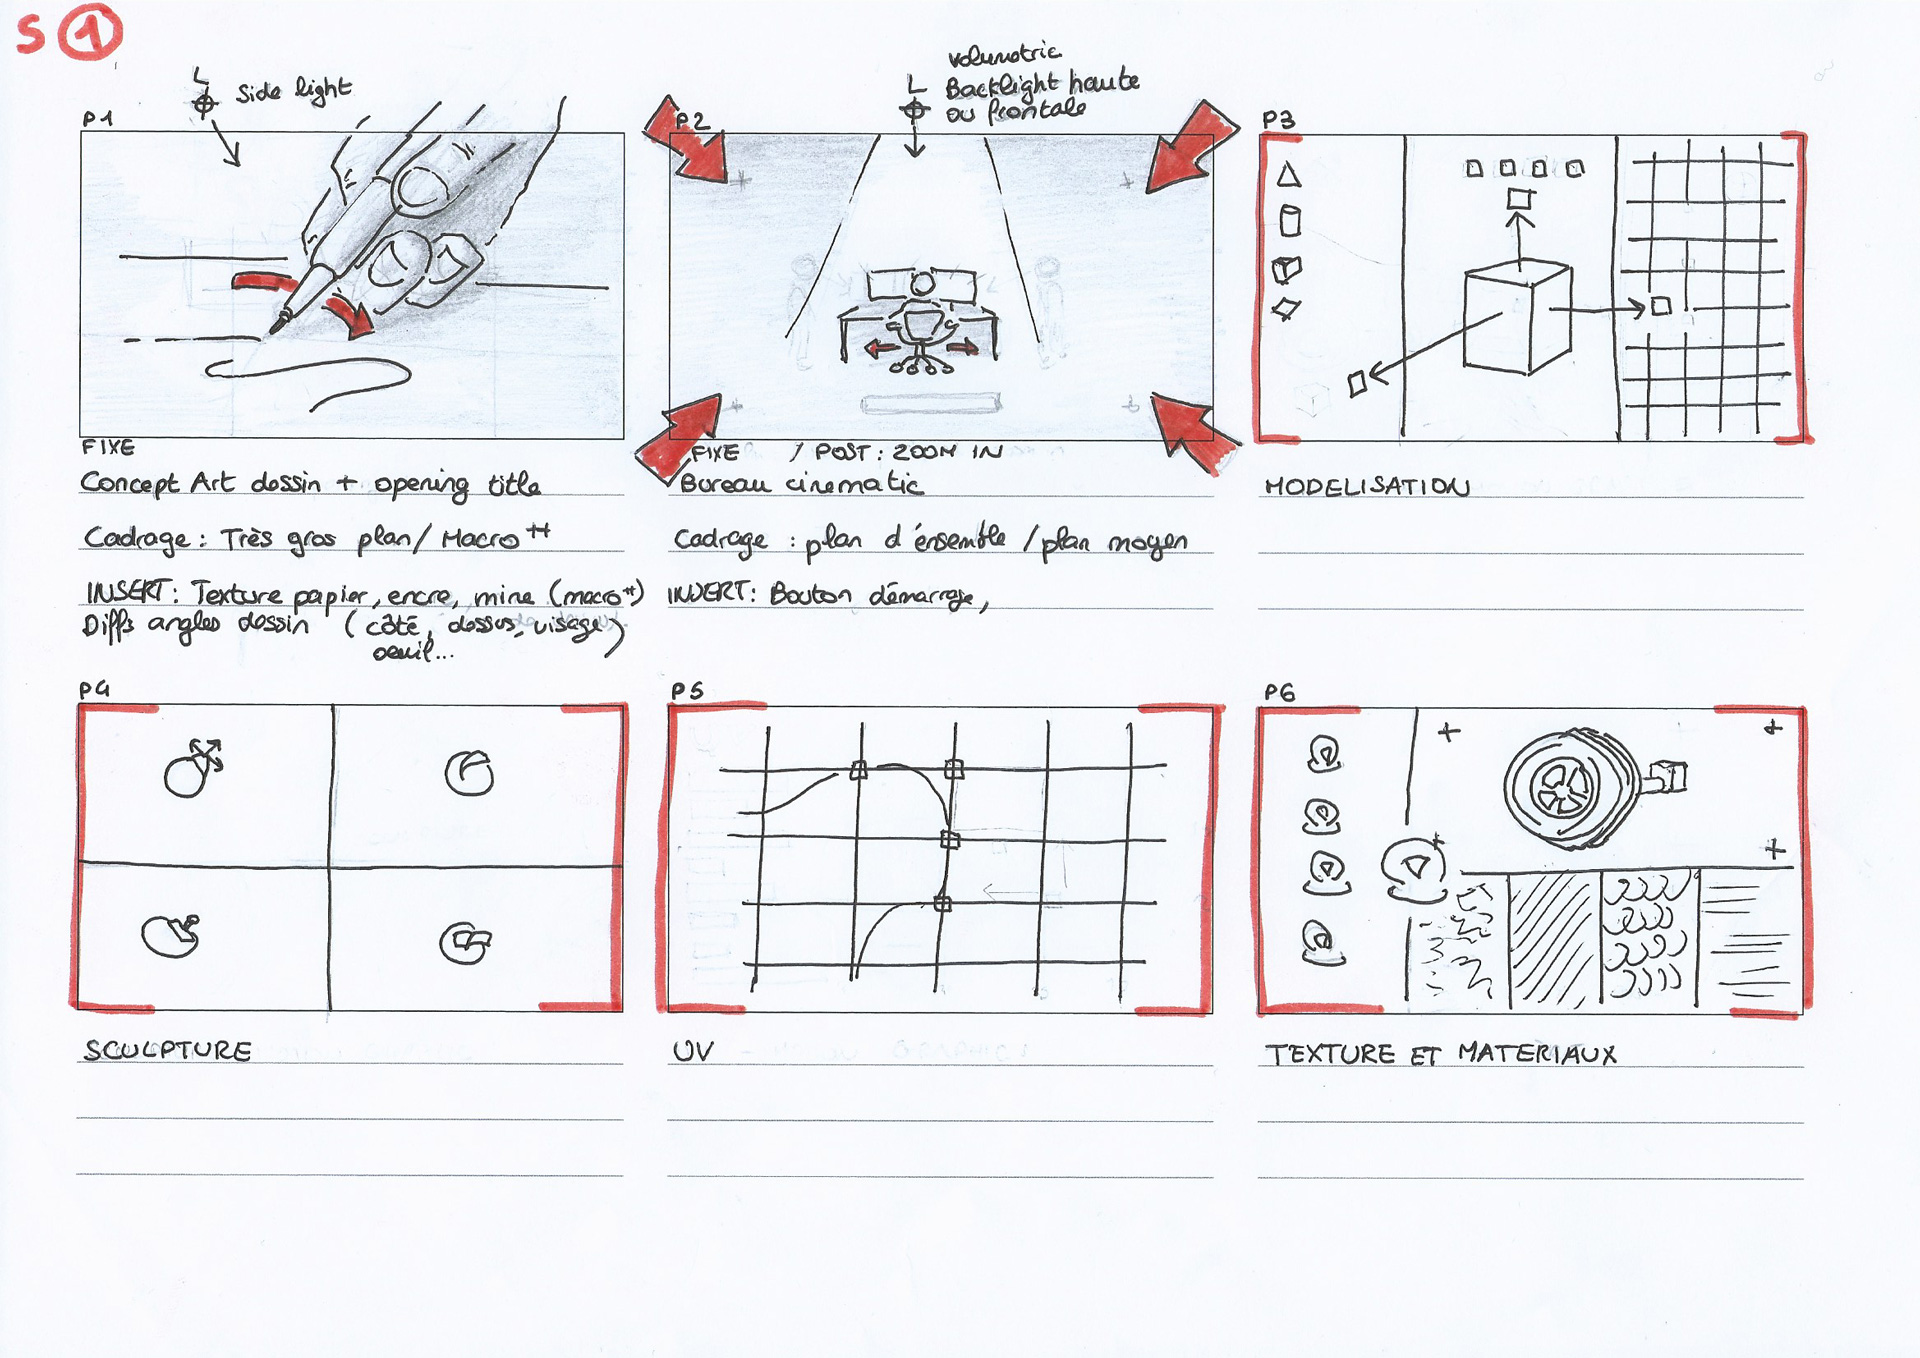 S 1
L Side light
P1
FIXE
Concept Art dessin + opening title
Cadrage : Très gros plan / Macro ++
INSERT : Texture papier, encre, mine (macro++)
Diffs angles dessin (côté, dessus, visage)
oeuil...
volumetric
L Backlight haute
ou frontale
P2
FIXE / POST : ZOOM IN
Bureau cinematic
Cadrage : plan d'énsemble / plan moyen
INSERT : Bouton démarrage,
P3
MODELISATION
P4
SCULPTURE
P5
UV
P6
TEXTURE ET MATERIAUX